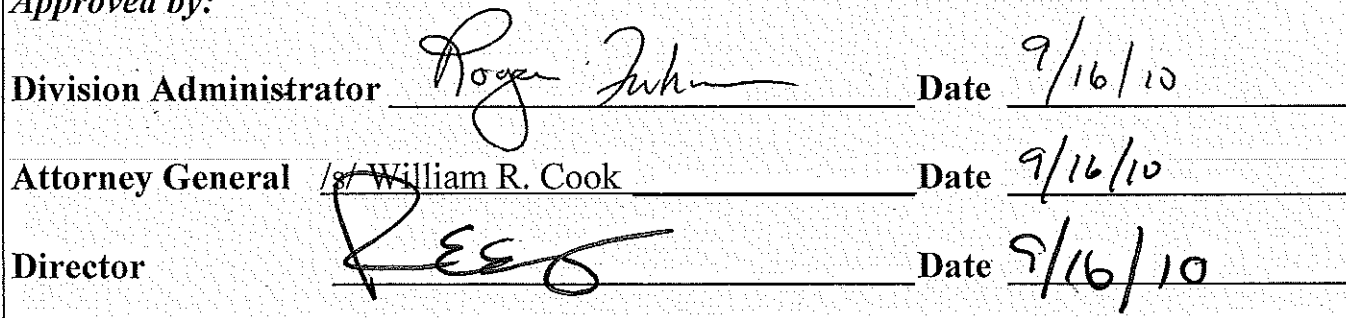 Approved by:
Division Administrator Roger Date 9/16/10
Attorney General /s/ William R. Cook Date 9/16/10
Director Date 9/16/10